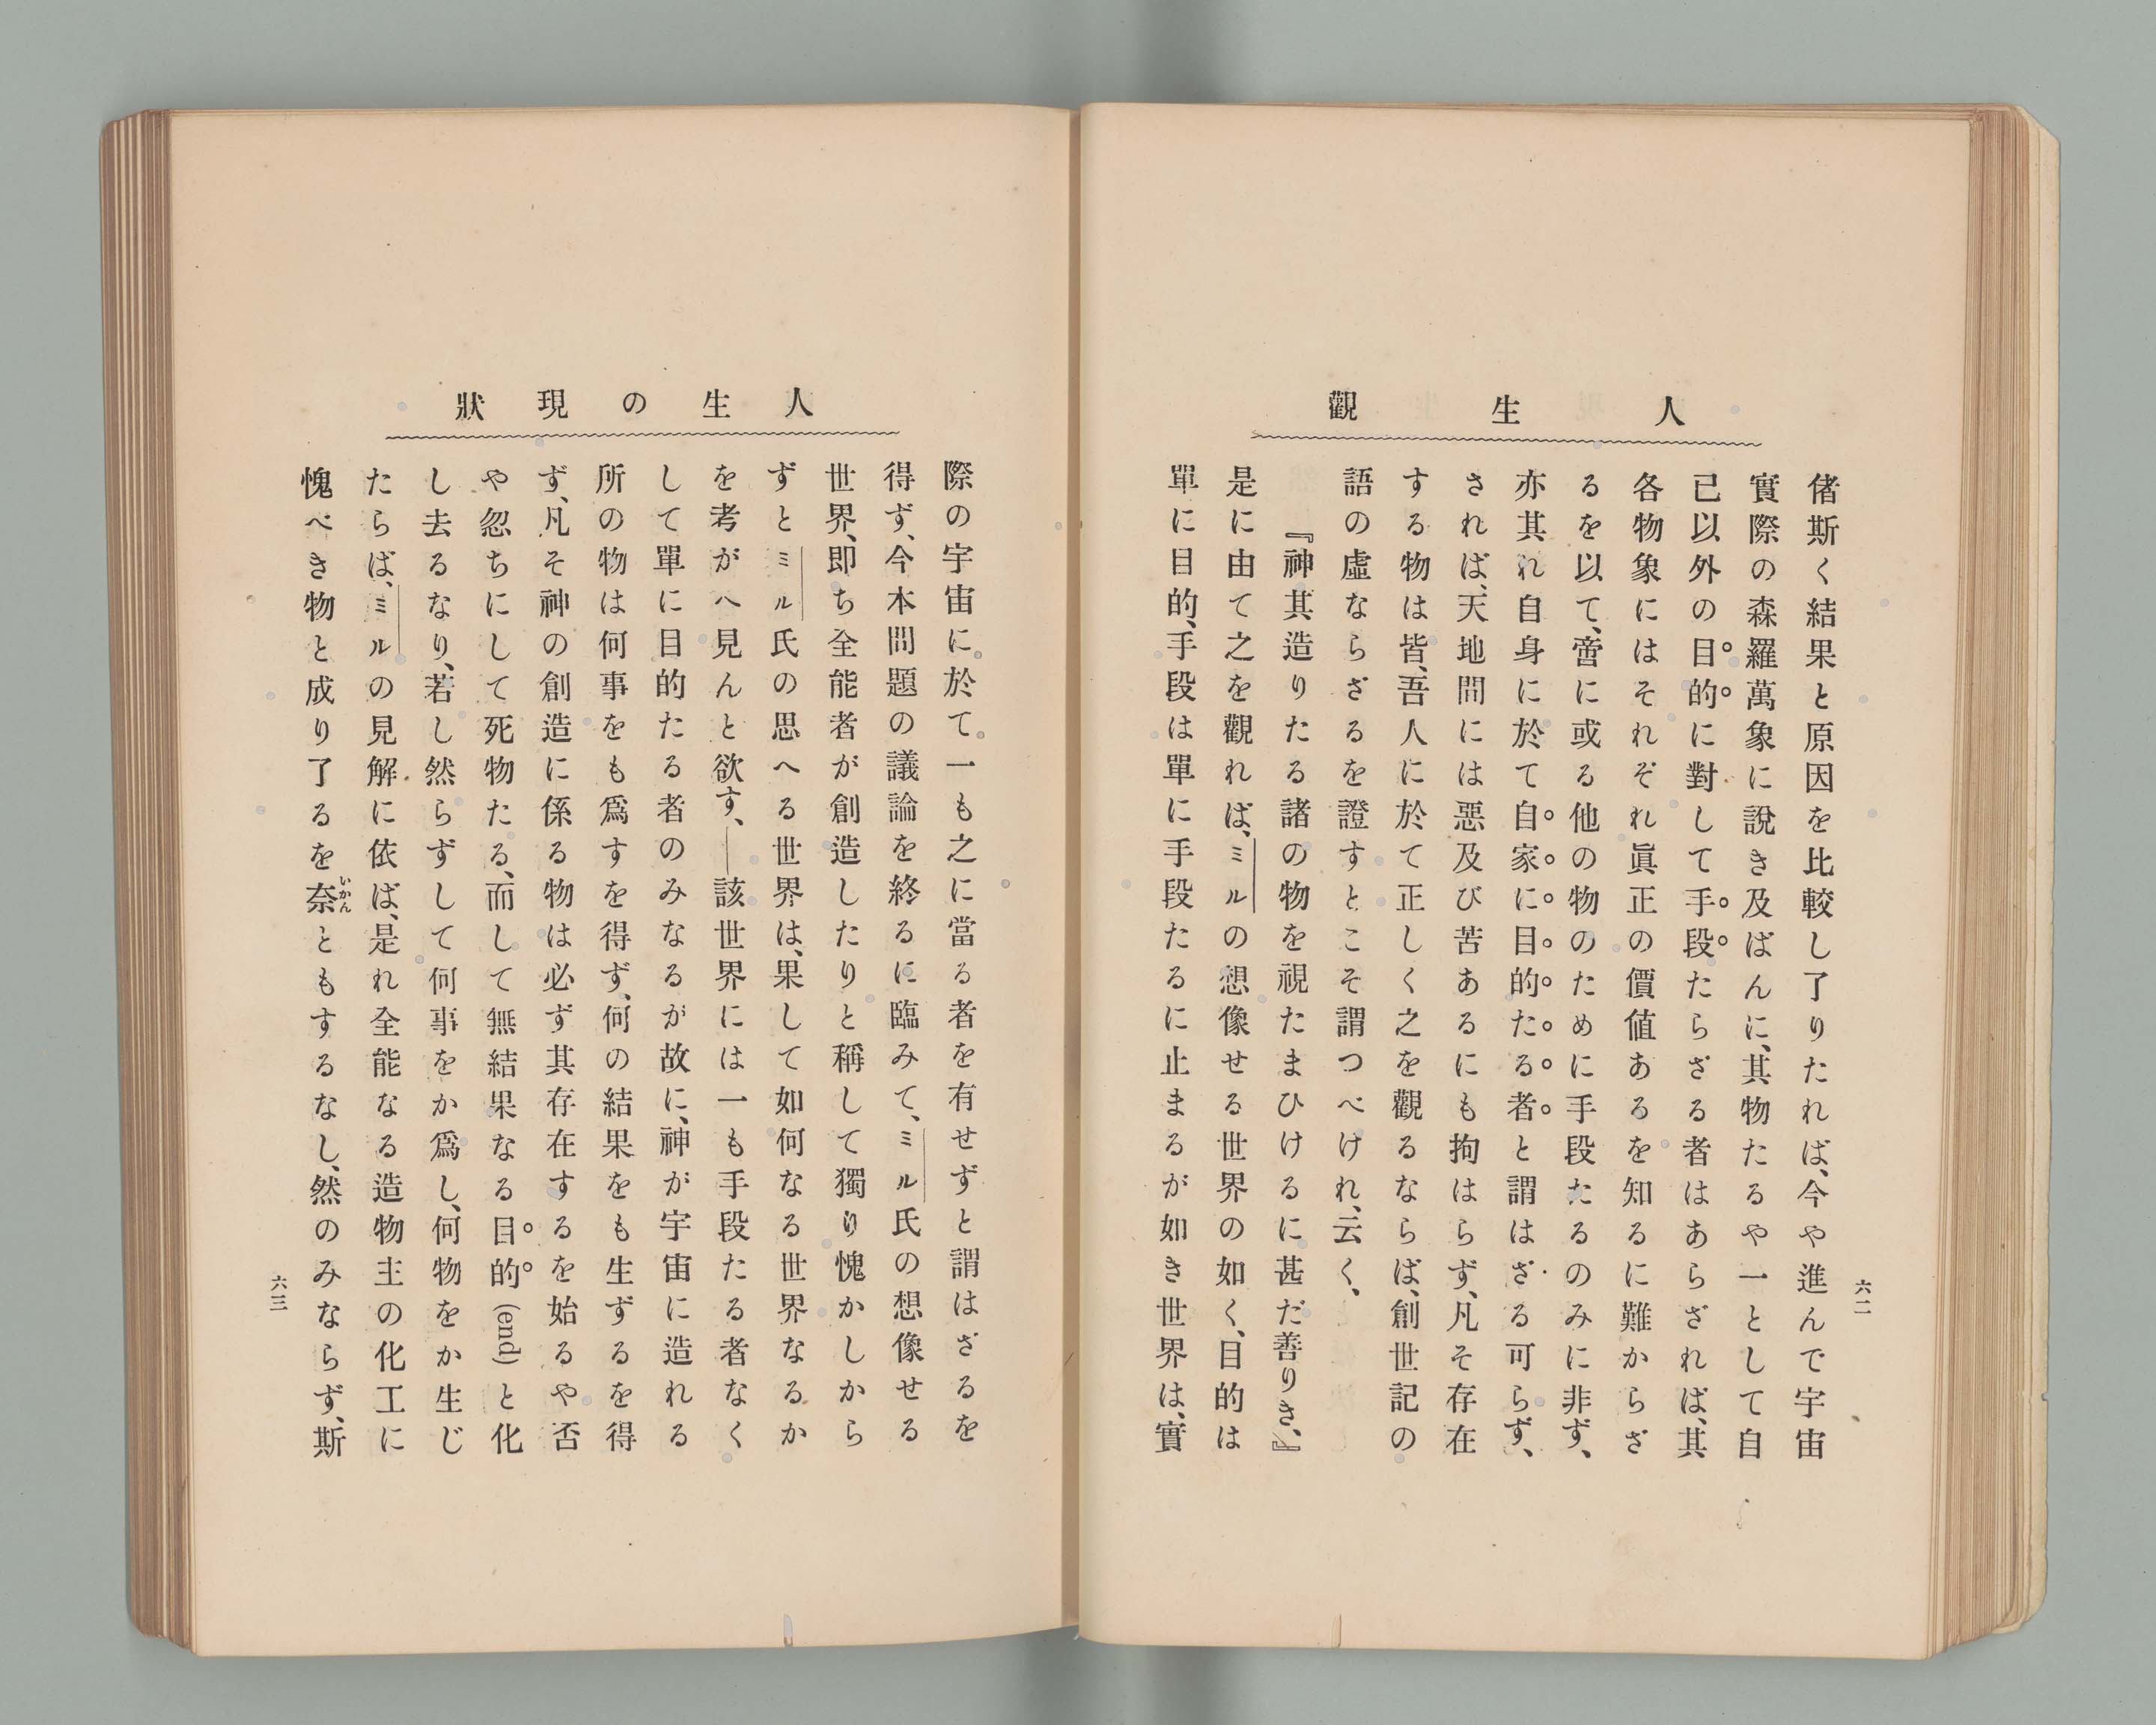 人生觀
偖斯く結果と原因を比較し了りたれば、今や進んで宇宙
實際の森羅萬象に說き及ばんに、其物たるや一として自
己以外の目的に對して手段たらざる者はあらざれば、其
各物象にはそれぞれ眞正の價値あるを知るに難からざ
るを以て、啻に或る他の物のために手段たるのみに非ず、
亦其れ自身に於て自家に目的たる者と謂はざる可らず、
されば、天地間には惡及び苦あるにも拘はらず、凡そ存在
する物は皆、吾人に於て正しく之を觀るならば、創世記の
語の虛ならざるを證すとこそ謂つべけれ、云く、
『神其造りたる諸の物を視たまひけるに甚だ善りき、』
是に由て之を觀れば、ミルの想像せる世界の如く、目的は
單に目的、手段は單に手段たるに止まるが如き世界は、實
六二
人生の現狀
際の宇宙に於て一も之に當る者を有せずと謂はざるを
得ず、今本問題の議論を終るに臨みて、ミル氏の想像せる
世界、即ち全能者が創造したりと稱して獨り愧かしから
ずとミル氏の思へる世界は、果して如何なる世界なるか
を考がへ見んと欲す、―該世界には一も手段たる者なく
して單に目的たる者のみなるが故に、神が宇宙に造れる
所の物は何事をも爲すを得ず、何の結果をも生ずるを得
ず、凡そ神の創造に係る物は必ず其存在するを始るや否
や忽ちにして死物たる、而して無結果なる目的(end)と化
し去るなり、若し然らずして何事をか爲し、何物をか生じ
たらば、ミルの見解に依ば、是れ全能なる造物主の化工に
愧べき物と成り了るを奈いかんともするなし、然のみならず、斯
六三